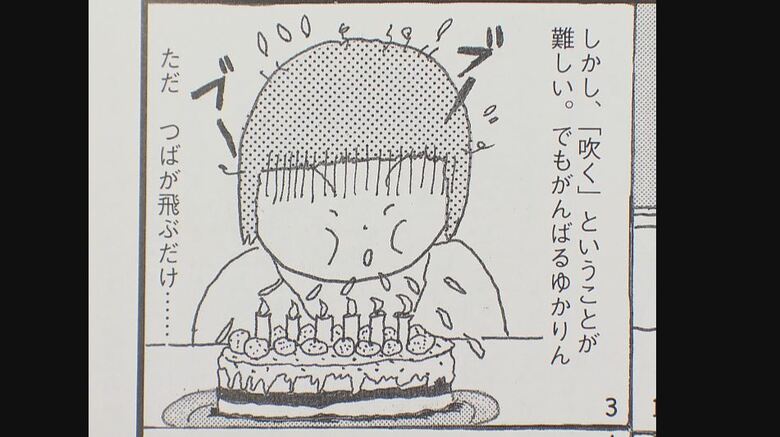 しかし、「吹く」ということが
難しい。でもがんばるゆかりん
ブー
ブー
ただ つばが飛ぶだけ……
3